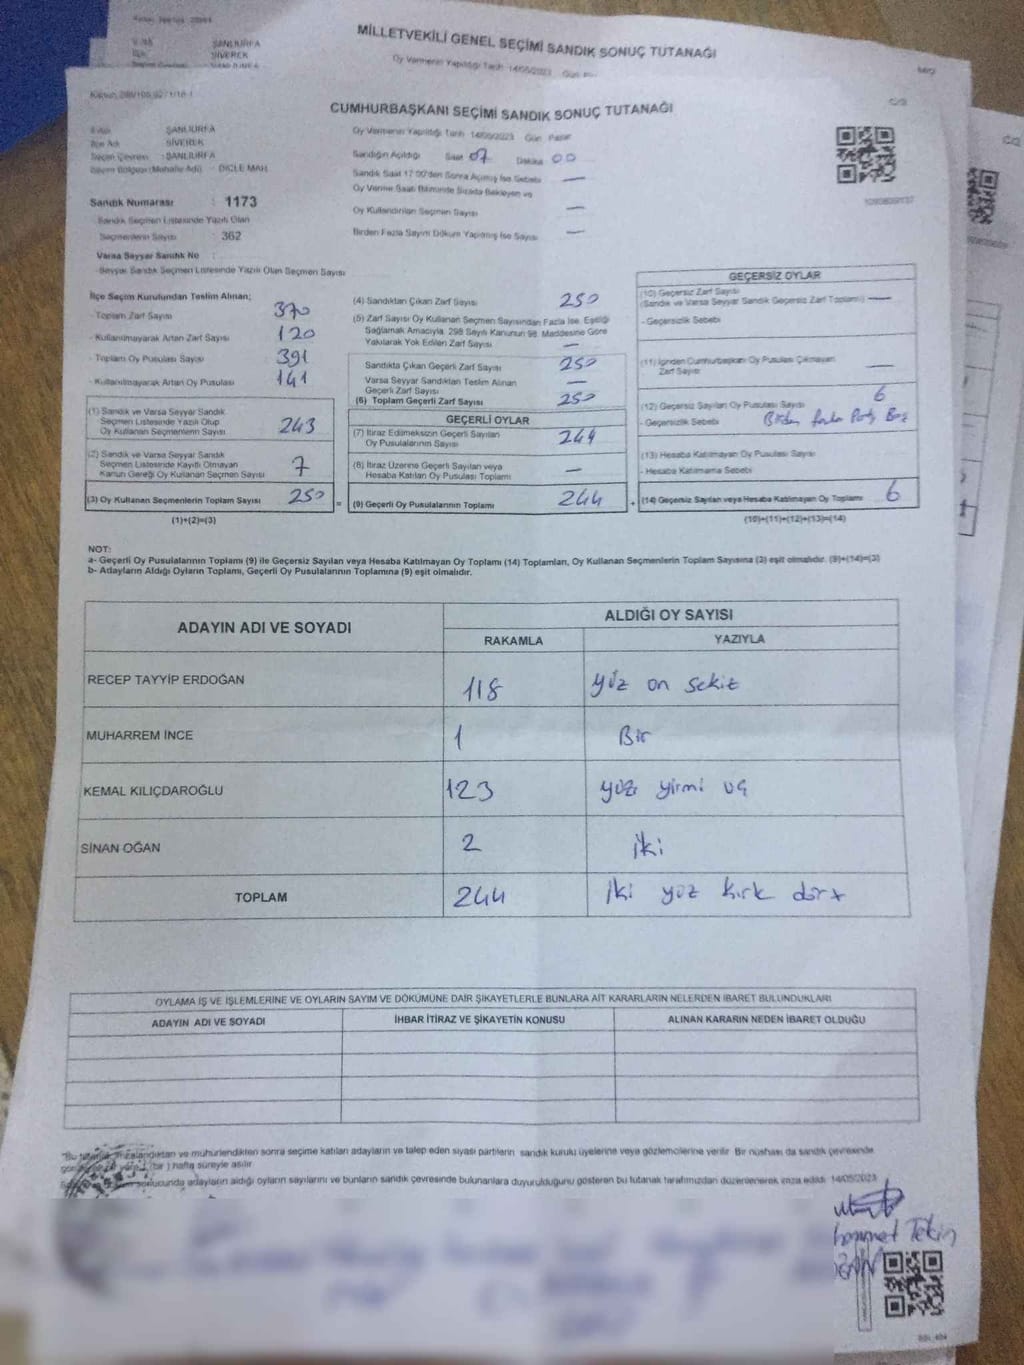 MİLLETVEKİLİ GENEL SEÇİMİ SANDIK SONUÇ TUTANAĞI
Oy Vermenin Yapıldığı Tarih 14/05/2023 Gün
ŞANLIURFA
SİVEREK
CUMHURBAŞKANI SEÇİMİ SANDIK SONUÇ TUTANAĞI
ŞANLIURFA
İlçe Adı SİVEREK
Seçim Çevresi : ŞANLIURFA
Seçim Bölgesi (Mahalle Adı) : DİCLE MAH.
Oy Vermenin Yapıldığı Tarih 14/05/2023 Gün Pazar
Sandığın Açıldığı Saat 07 Dakika 00
Sandık Saat 17:00'den Sonra Açılmış İse Sebebi —
Oy Verme Saati Bitiminde Sırada Bekleyen ve
Oy Kullandırılan Seçmen Sayısı —
Birden Fazla Sayım Döküm Yapılmış İse Sayısı —
Sandık Numarası : 1173
Sandık Seçmen Listesinde Yazılı Olan
Seçmenlerin Sayısı : 362
Varsa Seyyar Sandık No :
Seyyar Sandık Seçmen Listesinde Yazılı Olan Seçmen Sayısı
İlçe Seçim Kurulundan Teslim Alınan;
- Toplam Zarf Sayısı 370
- Kullanılmayarak Artan Zarf Sayısı 120
- Toplam Oy Pusulası Sayısı 391
- Kullanılmayarak Artan Oy Pusulası 141
(1) Sandık ve Varsa Seyyar Sandık
Seçmen Listesinde Yazılı Olup
Oy Kullanan Seçmenlerin Sayısı 243
(2) Sandık ve Varsa Seyyar Sandık
Seçmen Listesinde Kayıtlı Olmayan
Kanun Gereği Oy Kullanan Seçmen Sayısı 7
(3) Oy Kullanan Seçmenlerin Toplam Sayısı 250 =
(1)+(2)=(3)
(4) Sandıktan Çıkan Zarf Sayısı 250
(5) Zarf Sayısı Oy Kullanan Seçmen Sayısından Fazla İse, Eşitliği
Sağlamak Amacıyla, 298 Sayılı Kanunun 98. Maddesine Göre
Yakılarak Yok Edilen Zarf Sayısı —
Sandıkta Çıkan Geçerli Zarf Sayısı 250
Varsa Seyyar Sandıktan Teslim Alınan
Geçerli Zarf Sayısı —
(6) Toplam Geçerli Zarf Sayısı 250
GEÇERLİ OYLAR
(7) İtiraz Edilmeksizin Geçerli Sayılan
Oy Pusulalarının Sayısı 244
(8) İtiraz Üzerine Geçerli Sayılan veya
Hesaba Katılan Oy Pusulası Toplamı —
(9) Geçerli Oy Pusulalarının Toplamı 244 +
GEÇERSİZ OYLAR
(10) Geçersiz Zarf Sayısı
(Sandık ve Varsa Seyyar Sandık Geçersiz Zarf Toplamı) —
- Geçersizlik Sebebi
(11) İçinden Cumhurbaşkanı Oy Pusulası Çıkmayan
Zarf Sayısı —
(12) Geçersiz Sayılan Oy Pusulası Sayısı 6
- Geçersizlik Sebebi Birden fazla
(13) Hesaba Katılmayan Oy Pusulası Sayısı
- Hesaba Katılmama Sebebi
(14) Geçersiz Sayılan veya Hesaba Katılmayan Oy Toplamı 6
(10)+(11)+(12)+(13)=(14)
NOT:
a- Geçerli Oy Pusulalarının Toplamı (9) ile Geçersiz Sayılan veya Hesaba Katılmayan Oy Toplamı (14) Toplamları, Oy Kullanan Seçmenlerin Toplam Sayısına (3) eşit olmalıdır. (9)+(14)=(3)
b- Adayların Aldığı Oyların Toplamı, Geçerli Oy Pusulalarının Toplamına (9) eşit olmalıdır.
ADAYIN ADI VE SOYADI
ALDIĞI OY SAYISI
RAKAMLA YAZIYLA
RECEP TAYYİP ERDOĞAN 118 yüz on sekiz
MUHARREM İNCE 1 Bir
KEMAL KILIÇDAROĞLU 123 yüz yirmi üç
SİNAN OĞAN 2 iki
TOPLAM 244 iki yüz kırk dört
OYLAMA İŞ VE İŞLEMLERİNE VE OYLARIN SAYIM VE DÖKÜMÜNE DAİR ŞİKAYETLERLE BUNLARA AİT KARARLARIN NELERDEN İBARET BULUNDUKLARI
ADAYIN ADI VE SOYADI İHBAR İTİRAZ VE ŞİKAYETİN KONUSU ALINAN KARARIN NEDEN İBARET OLDUĞU
"Bu imzalandıktan ve mühürlendikten sonra seçime katılan adayların ve talep eden siyasi partilerin sandık kurulu üyelerine veya gözlemcilerine verilir. Bir nüshası da sandık çevresinde
(bir) hafta süreyle asılır.
sonucunda adayların aldığı oyların sayılarını ve bunların sandık çevresinde bulunanlara duyurulduğunu gösteren bu tutanak tarafımızdan düzenlenerek imza edildi. 14/05/2023
Tekin